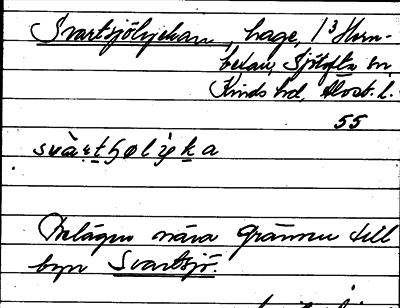 Svartsjölyckan, hage, 1/3 Hem-
betan, Sjötofta sn,
Kinds hd, Älvsb. l.
55
svàʀt̲ɧøl ỳk̲a
Belägen nära gränsen till
byn Svartsjö.